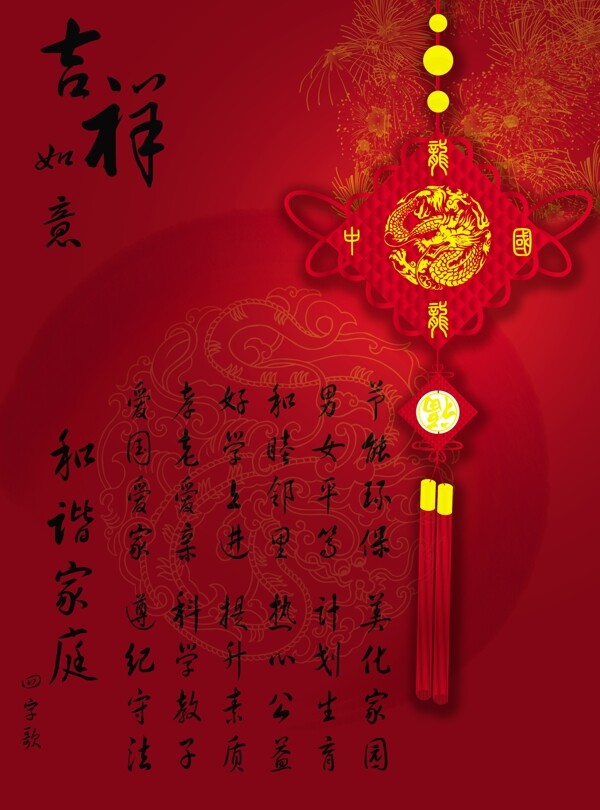 吉祥
如意
和谐家庭
四字歌
爱国爱家 遵纪守法
孝老爱亲 科学教子
好学上进 提升素质
和睦邻里 热心公益
男女平等 计划生育
节能环保 美化家园
龍
中 國
龍
福